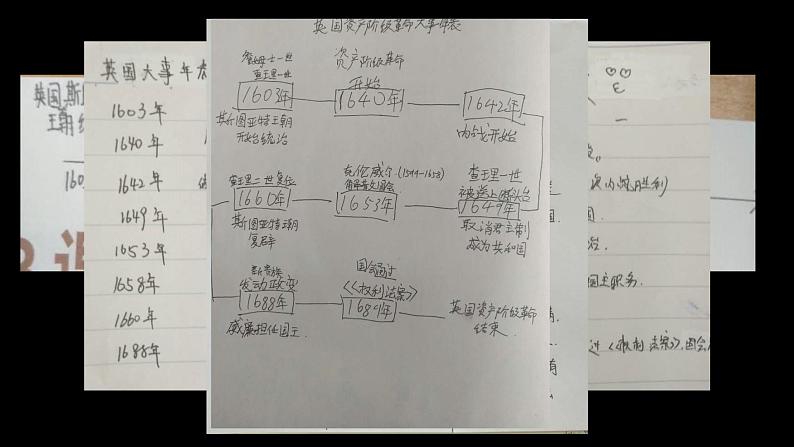 英国资产阶级革命大事件表
詹姆士一世
查王里一世
1603年
斯图亚特王朝
开始统治
资产阶级革命
开始
1640年
1642年
内战开始
查王里一世
被送上断头台
1649年
取消君主制
成为共和国
克伦威尔(1599-1658)
解散国会
1653年
查王里二世复位
1660年
斯图亚特王朝
复辟
新贵族
发动政变
1688年
威廉担任国王
国会通过
《权利法案》
1689年
英国资产阶级革命
结束
英国大事年
1603年
1640年
1642年
1649年
1653年
1658年
1660年
1688年
英国斯
王朝
次内战胜利
国
国主职务.
过《权利法案》,国会